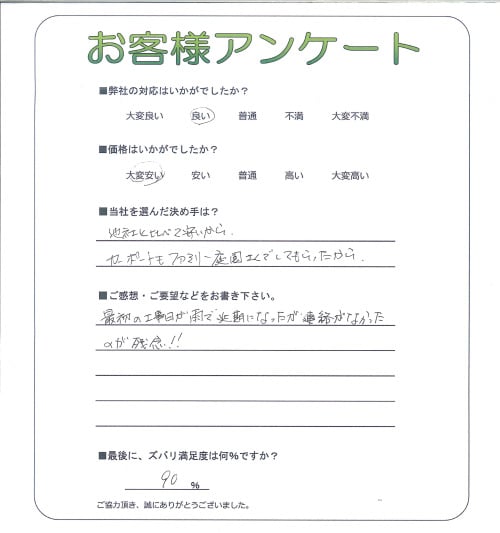 お客様アンケート
■弊社の対応はいかがでしたか？
大変良い 良い 普通 不満 大変不満
■価格はいかがでしたか？
大変安い 安い 普通 高い 大変高い
■当社を選んだ決め手は？
他社と比べて安いから。
カーポートもファミリー庭園さんでしてもらったから。
■ご感想・ご要望などをお書き下さい。
最初の工事日が雨で延期になったが連絡がなかった
のが残念!!
■最後に、ズバリ満足度は何%ですか？
90 %
ご協力頂き、誠にありがとうございました。